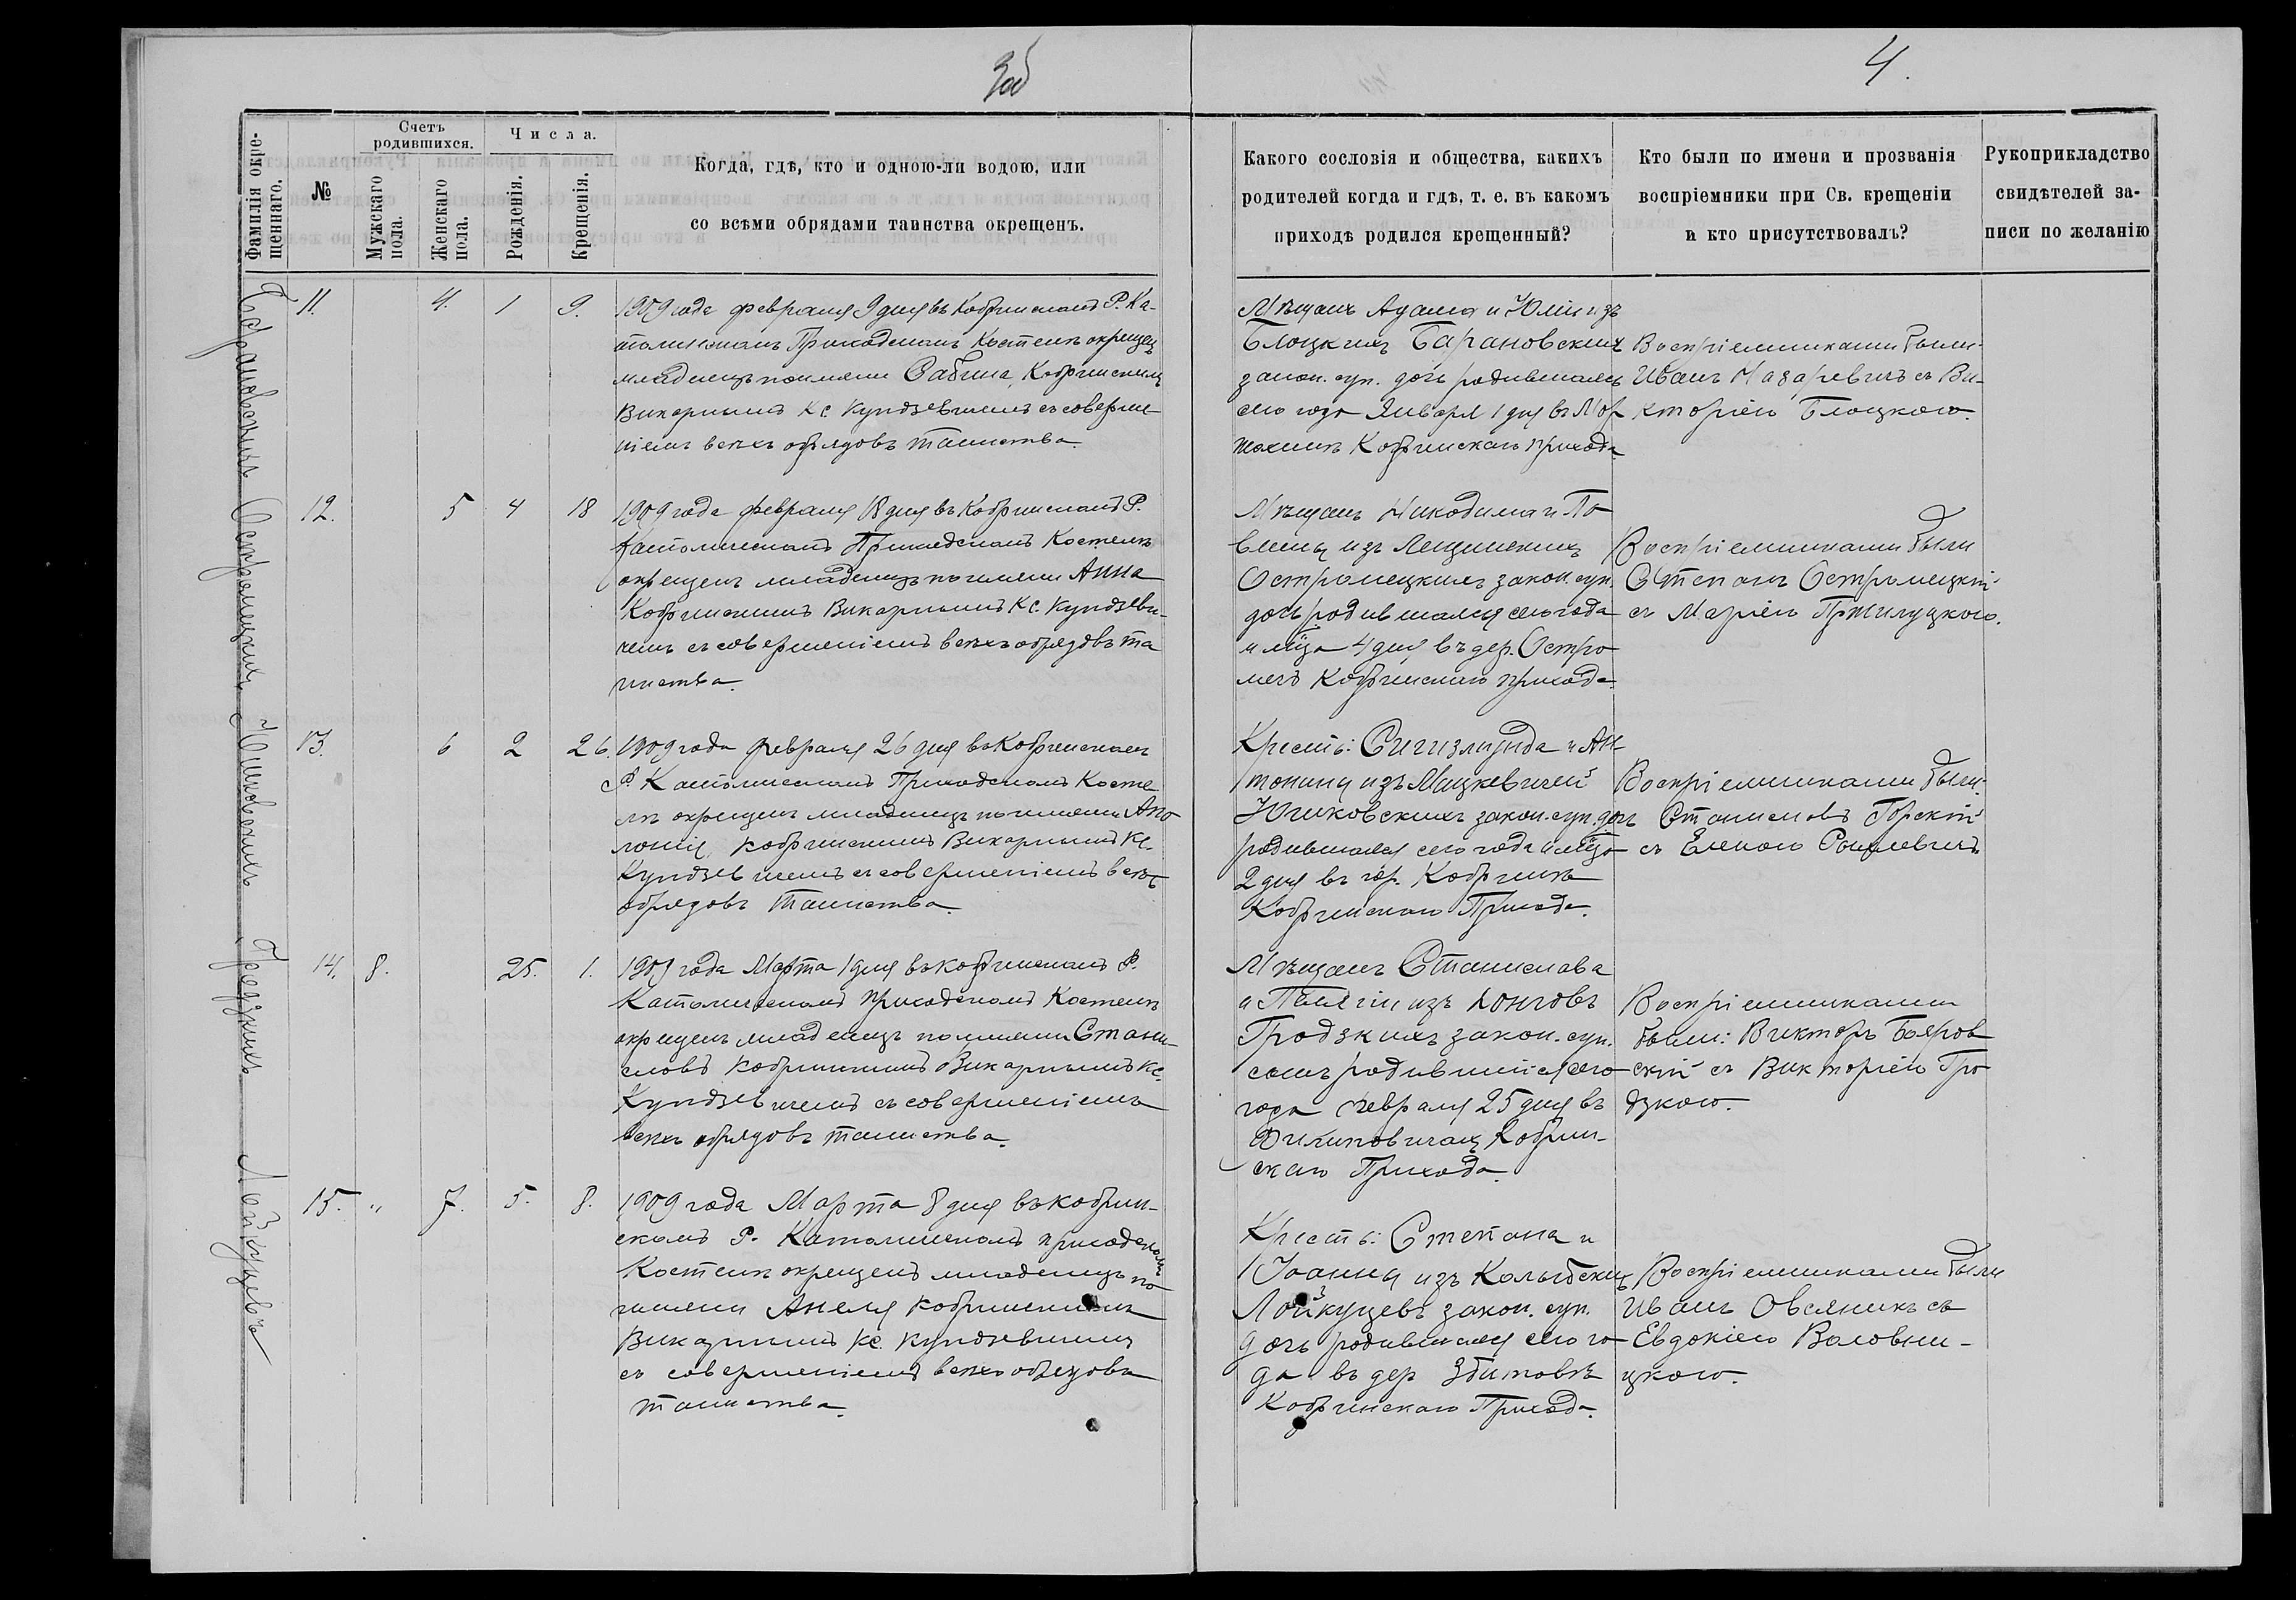 3об
4.
Фамилія окре-
щеннаго.
№
Счетъ
родившихся.
Мужскаго
пола.
Женскаго
пола.
Числа.
Рожденія.
Крещенія.
Когда, гдѣ, кто и одною-ли водою, или
со всѣми обрядами таинства окрещенъ.
Какого сословія и общества, какихъ
родителей когда и гдѣ, т. е. въ какомъ
приходѣ родился крещенный?
Кто были по имени и прозванія
воспріемники при Св. крещеніи
и кто присутствовалъ?
Рукоприкладство
свидѣтелей за-
писи по желанію
Барановскихъ
11. 4. 1 9.
1909 года февраля 9 дня въ Кобринскомъ Р. Ка-
толическомъ Приходскомъ Костелѣ окрещенъ
младенецъ по имени Сабина, Кобринскимъ
Викарнымъ Кс Кундзевичемъ съ соверше-
ніемъ всѣхъ обрядовъ таинства.
Мѣщанъ Адама и Юліи изъ
Блоцкихъ Барановскихъ
закон. суп. дочь родившаяся
сего года Января 1 дня въ
Кобринскаго прихода
Воспріемниками были:
Иванъ Назаревичъ съ Ви-
кторіею Блоцкою.
Остромецкихъ
12. 5 4 18
1909 года февраля 18 дня въ Кобринскомъ Р.
Католическомъ Приходскомъ Костелѣ
окрещенъ младенецъ по имени Анна
Кобринскимъ Викарнымъ Кс. Кундзеви-
чемъ съ совершеніемъ всѣхъ обрядовъ та
инства.
Мѣщанъ Никодима и Па
влины изъ Лещинскихъ
Остромецкихъ закон. суп.
дочь родившаяся сего года
и мѣца 4 дня въ дер. Остро
мечъ Кобринскаго прихода.
Воспріемниками были
Степанъ Остромецкій
съ Маріею Пржилуцкою.
Юшковскихъ
13. 6 2 26.
1909 года февраля 26 дня въ Кобринскомъ
Р. Католическомъ Приходскомъ Косте
лѣ окрещенъ младенецъ по имени Апо
лонія, Кобринскимъ Викарнымъ Кс.
Кундзевичемъ съ совершеніемъ всѣхъ
обрядовъ Таинства.
Крестъ: Сигизмунда и Ан-
тонины изъ Мацкевичей
Юшковскихъ закон. суп. дочь
родившаяся сего года и мѣца
2 дня въ гор. Кобринѣ
Кобринскаго Прихода.
Воспріемниками были:
Станиславъ Горскій
съ Еленою
Гродзкихъ
14. 8. 25. 1.
1909 года Марта 1 дня въ Кобринскомъ Р.
Католическомъ приходскомъ Костелѣ
окрещенъ младенецъ по имени Стани-
славъ Кобринскимъ Викарнымъ Кс.
Кундзевичемъ съ совершеніемъ
всѣхъ обрядовъ таинства.
Мѣщанъ Станислава
и Пелягіи изъ Лонговъ
Гродзкихъ закон. суп.
сынъ родившійся сего
года Февраля 25 дня въ
Филиповичахъ Кобрин-
скаго Прихода.
Воспріемниками
были: Викторъ Бояров
скій съ Викторіею Гро
дзкою.
Лойкуцевъ
15. " 7. 5. 8.
1909 года Марта 8 дня въ Кобрин-
скомъ Р. Католическомъ приходскомъ
Костелѣ окрещенъ младенецъ по
имени Анеля Кобринскимъ
Викарнымъ Кс. Кундзевичемъ
съ совершеніемъ всѣхъ обрядовъ
таинства.
Крестъ: Степана и
Іоанны изъ Колыбскихъ
Лойкуцевъ закон. суп.
дочь родившаяся сего го
да въ дер Збитовѣ
Кобринскаго Прихода.
Воспріемниками были
Иванъ Овсяникъ съ
Евдокіею Воловни-
цкою.